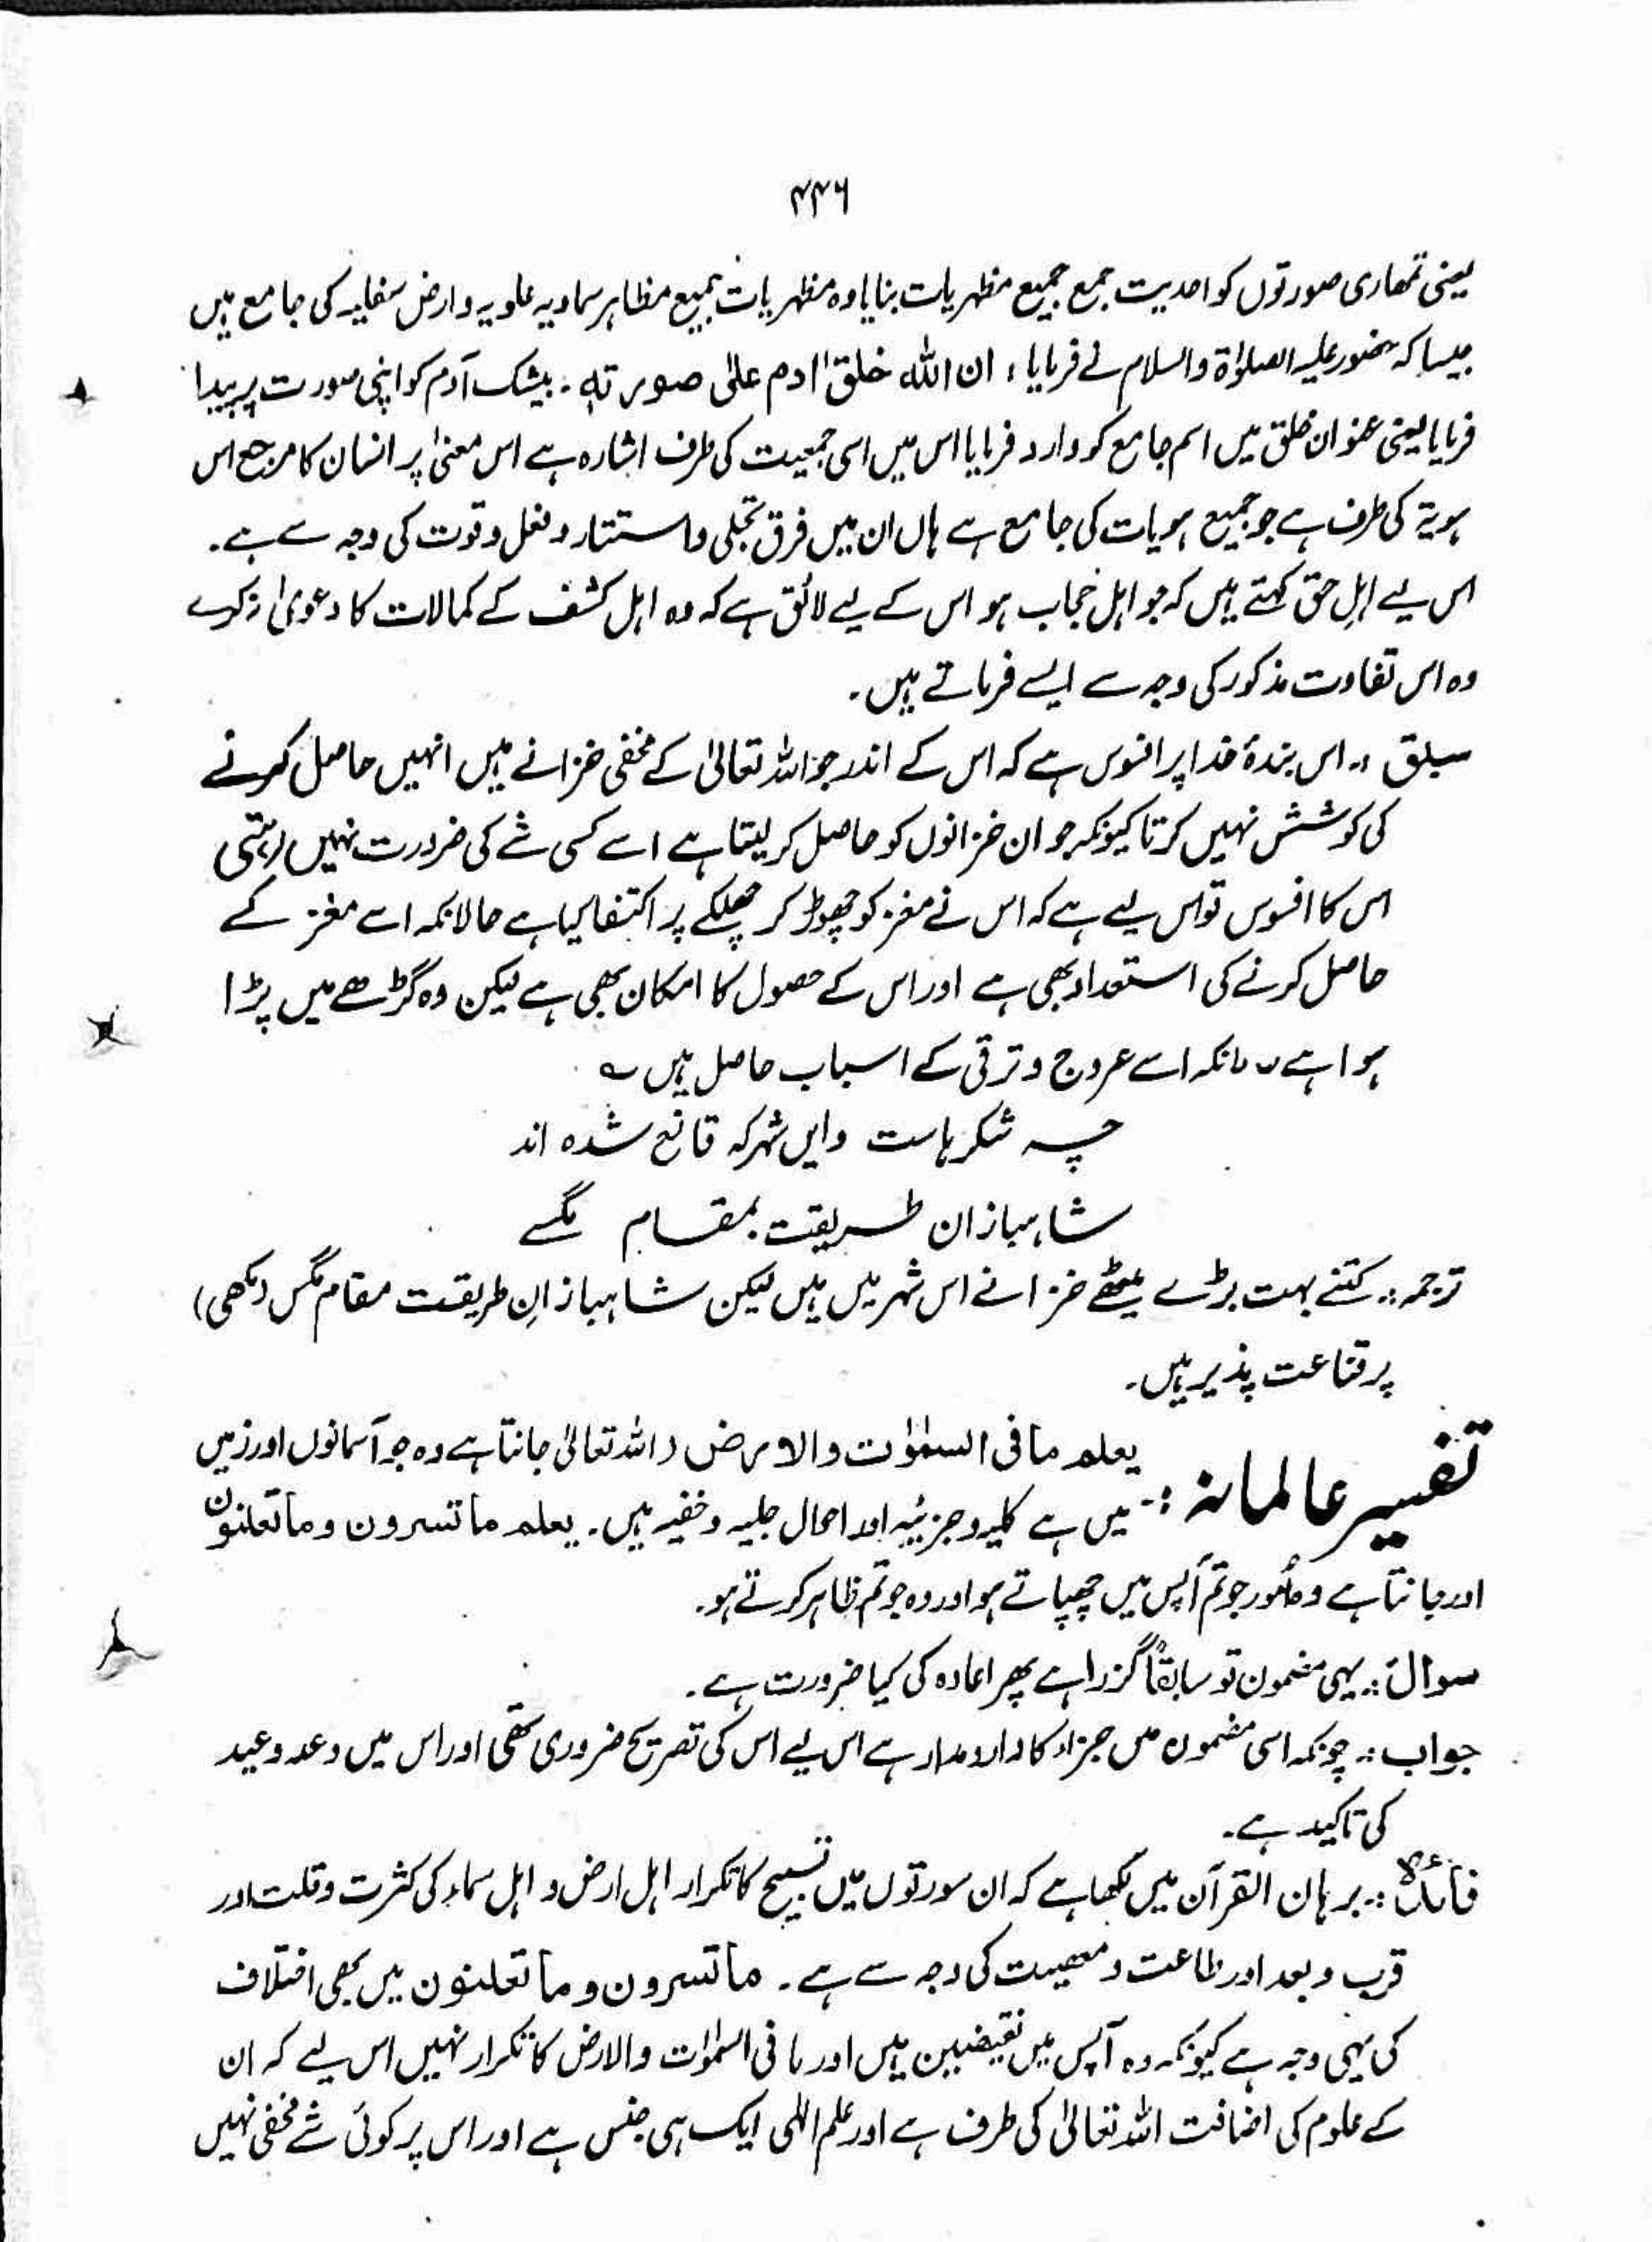 ۴۴۶
یعنی تمھاری صورتوں کو احدیت جمع جمیع مظہریات بنایا وہ مظہریات جمیع مظاہر سماویہ علویہ و ارض سفلیہ کی جامع ہیں
جیسا کہ حضور علیہ الصلوٰۃ والسلام نے فرمایا ؛ ان اللّٰہ خلق اٰدم علیٰ صورتہٖ ۔ بیشک آدم کو اپنی صورت پر پیدا
فرمایا یعنی عنوان خلق میں اسم جامع کو وارد فرمایا اس میں اسی جمعیت کی طرف اشارہ ہے اس معنیٰ پر انسان کا مرجع اس
ہویۃ کی طرف ہے جو جمیع ہویات کی جامع ہے ہاں ان میں فرق تجلی و استتار و فعل و قوت کی وجہ سے ہے ۔
اس لیے اہلِ حق کہتے ہیں کہ جو اہل حجاب ہو اس کے لیے لائق ہے کہ وہ اہل کشف کے کمالات کا دعویٰ نہ کرے
وہ اس تفاوت مذکور کی وجہ سے ایسے فرماتے ہیں ۔
سبق :۔ اس بندۂ خدا پر افسوس ہے کہ اس کے اندر جو اللہ تعالیٰ کے مخفی خزانے ہیں انہیں حاصل کرنے
کی کوشش نہیں کرتا کیونکہ جو ان خزانوں کو حاصل کر لیتا ہے اسے کسی شے کی ضرورت نہیں رہتی
اس کا افسوس تو اس لیے ہے کہ اس نے مغز کو چھوڑ کر چھلکے پر اکتفا کیا ہے حالانکہ اسے مغز کے
حاصل کرنے کی استعداد بھی ہے اور اس کے حصول کا امکان بھی ہے لیکن وہ گڑھے میں پڑا
ہوا ہے حالانکہ اسے عروج و ترقی کے اسباب حاصل ہیں ؎
چہ شکرہاست دایں شہر کہ قانع شدہ اند
شاہبازان طریقت بمقام مگسے
ترجمہ :۔ کتنے بہت بڑے میٹھے خزانے اس شہر میں ہیں لیکن شاہبازانِ طریقت مقام مگس (مکھی)
پر قناعت پذیر ہیں ۔
تفسیر عالمانہ :۔ یعلم ما فی السمٰوٰت والارض (اللہ تعالیٰ جانتا ہے وہ جو آسمانوں اور زمین
میں ہے کلیہ و جزئیہ اور احوال جلیہ و خفیہ ہیں ۔ یعلم ما تسرون وما تعلنون
اور جانتا ہے وہ امور جو تم آپس میں چھپاتے ہو اور وہ جو تم ظاہر کرتے ہو ۔
سوال :۔ یہی مضمون تو سابقاً گزرا ہے پھر اعادہ کی کیا ضرورت ہے ۔
جواب :۔ چونکہ اسی مضمون میں جزاء کا دارومدار ہے اس لیے اس کی تصریح ضروری تھی اور اس میں وعد وعید
کی تاکید ہے ۔
فائدہ :۔ برہان القرآن میں لکھا ہے کہ ان سورتوں میں تسبیح کا تکرار اہل ارض و اہل سماء کی کثرت و قلت اور
قرب و بعد اور طاعت و معصیت کی وجہ سے ہے ۔ ما تسرون وما تعلنون میں بھی اختلاف
کی یہی وجہ ہے کیونکہ وہ آپس میں نقیضین ہیں اور ما فی السمٰوٰت والارض کا تکرار نہیں اس لیے کہ ان
کے علوم کی اضافت اللہ تعالیٰ کی طرف ہے اور علم الٰہی ایک ہی جنس ہے اور اس پر کوئی شے مخفی نہیں